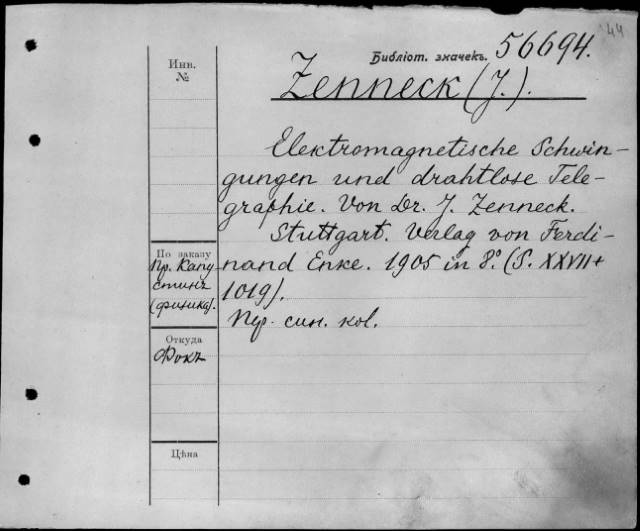 44
Библіот. значекъ. 56694.
Инв.
№
Zenneck (J.).
Elektromagnetische Schwin-
gungen und drahtlose Tele-
graphie. Von Dr. J. Zenneck.
Stuttgart. Verlag von Ferdi-
nand Enke. 1905 in 8º. (S. XXVII+
1019).
По заказу
Пр. Капу
стинъ
(физика).
Пер. син. кол.
Откуда
Фокъ
Цѣна